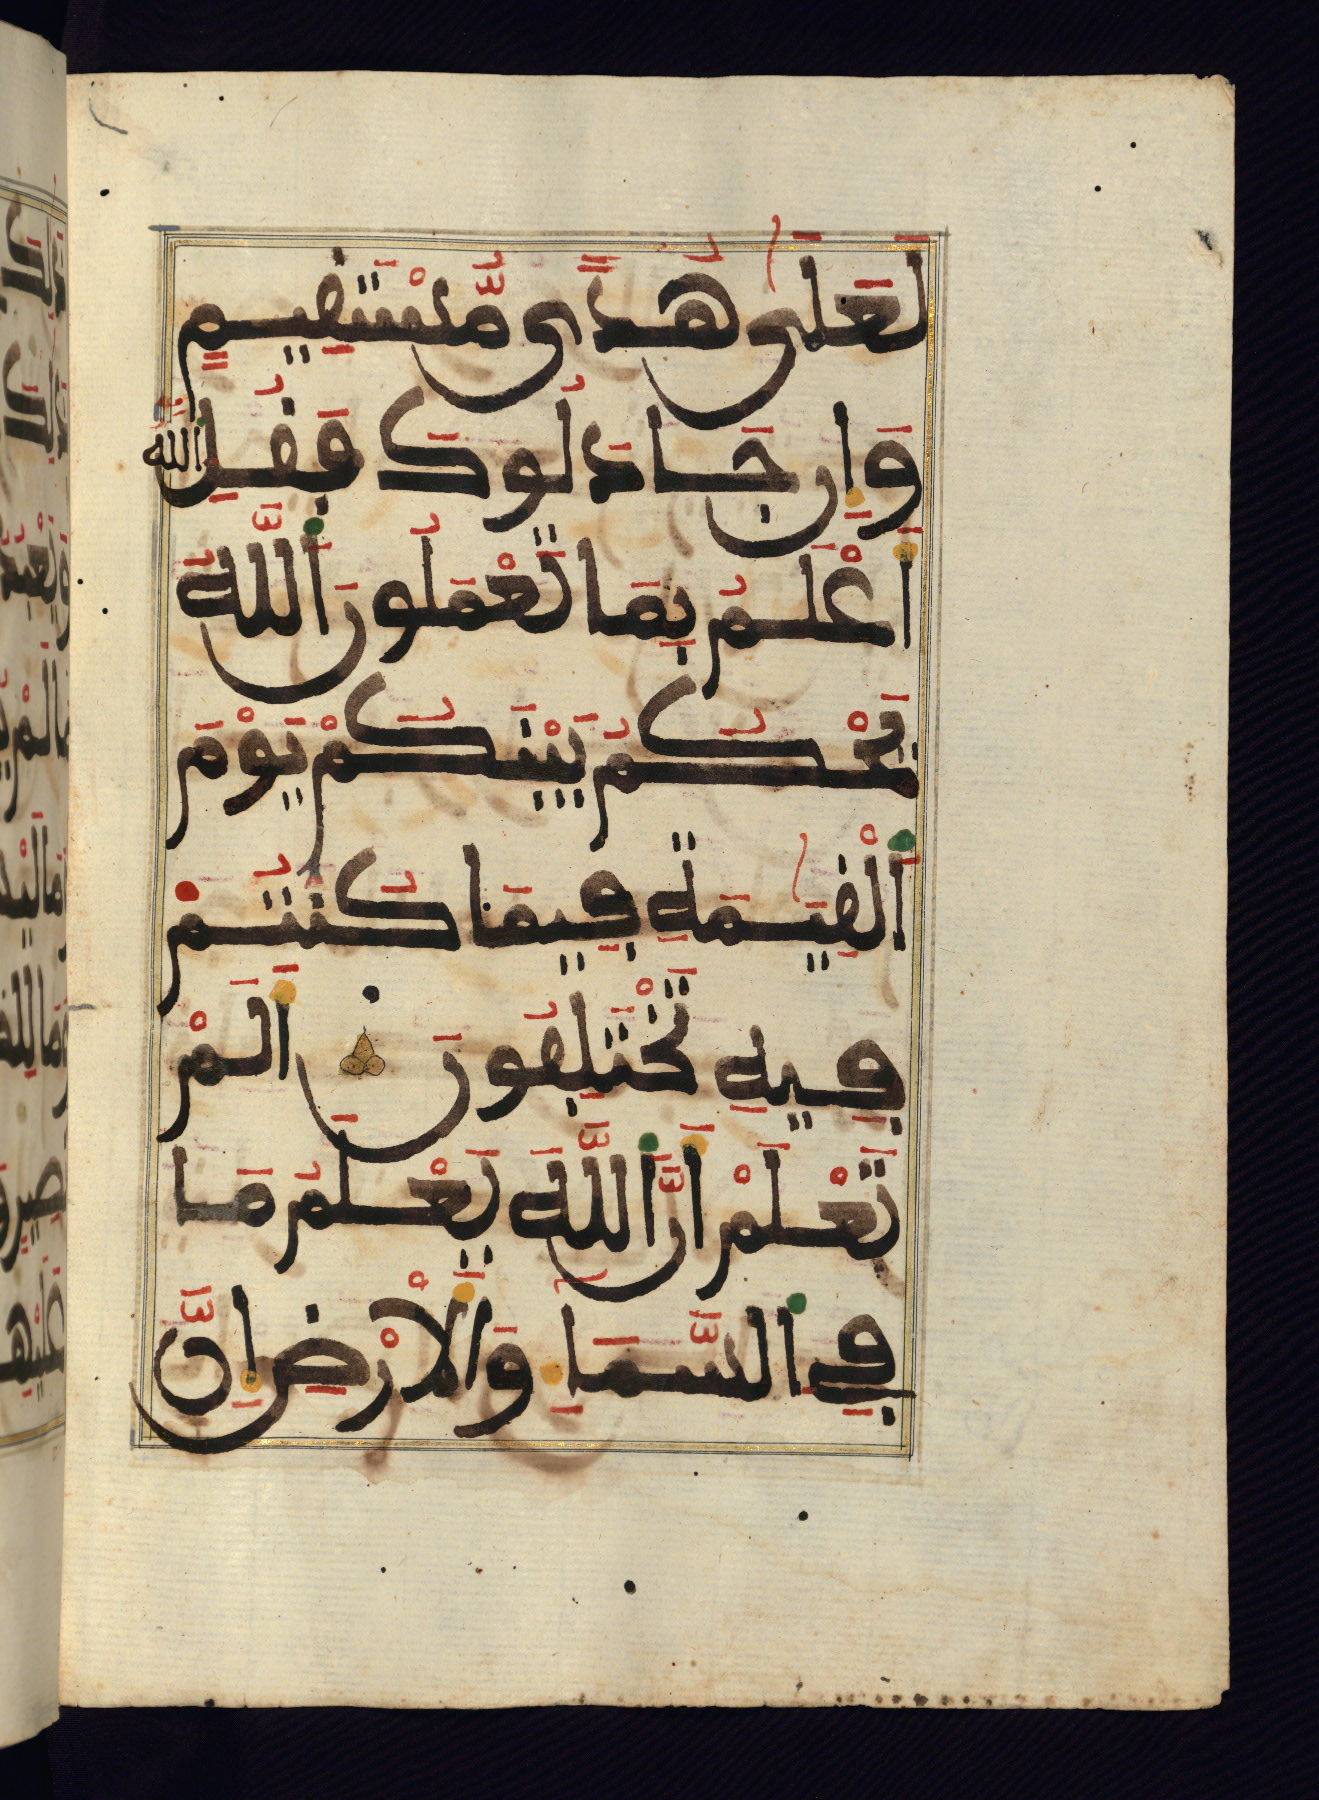 لَعَلَىٰ هُدًى مُّسْتَقِيمٍ
وَإِن جَادَلُوكَ فَقُلِ اللَّهُ
أَعْلَمُ بِمَا تَعْمَلُونَ اللَّهُ
يَحْكُمُ بَيْنَكُمْ يَوْمَ
الْقِيَٰمَةِ فِيمَا كُنتُمْ
فِيهِ تَخْتَلِفُونَ أَلَمْ
تَعْلَمْ أَنَّ اللَّهَ يَعْلَمُ مَا
فِي السَّمَاءِ وَالْأَرْضِ إِنَّ